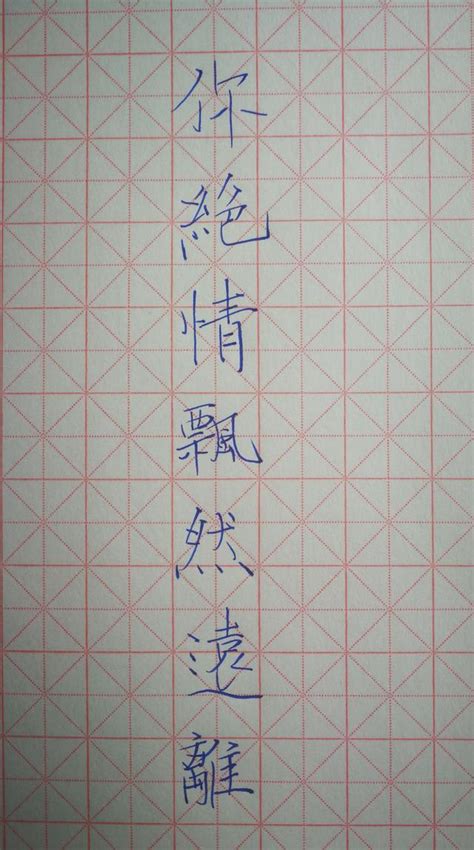 你絕情飄然遠離